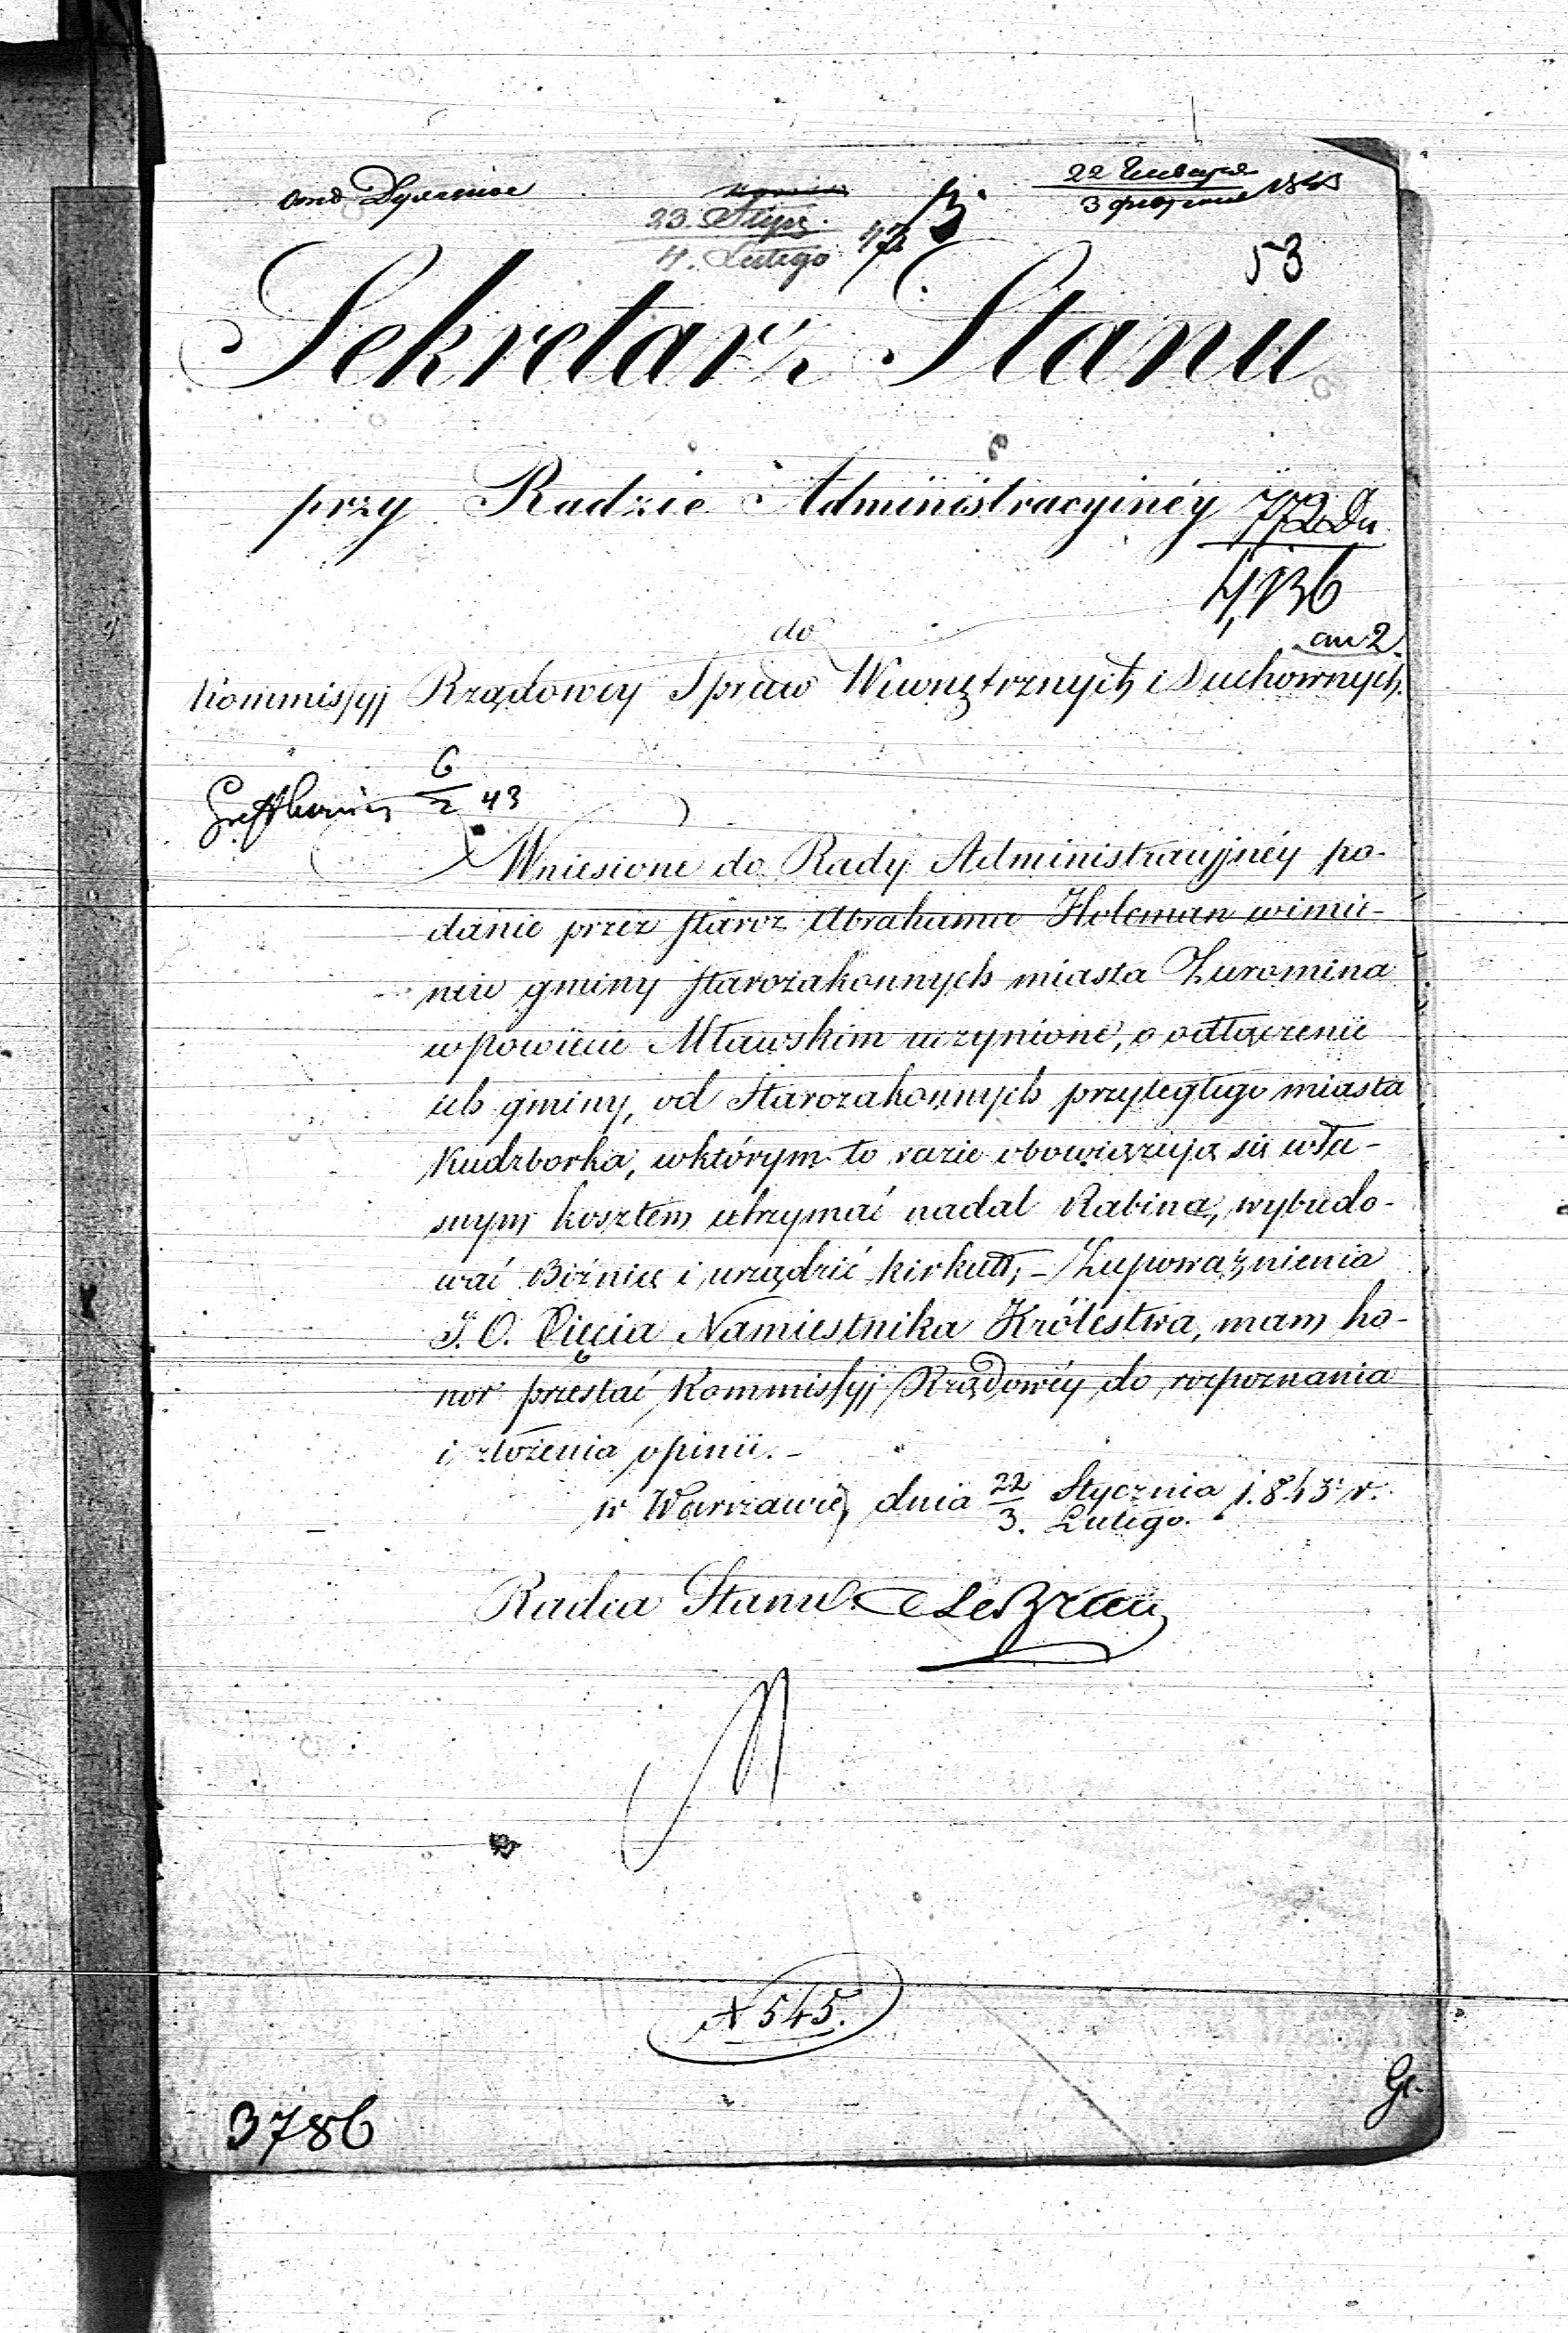 22 Января
3 1843
23. Stycz.
4. Lutego
53
Sekretarz Stanu
przy Radzie Administracyinéy
772
4,136
an 2.
do
Kommissyj Rządowéy Spraw Wewnętrznych i Duchownych.
6
2 43
Wniesione do Rady Administracyjnéy po-
danie przez staroz Abrahama Holcman wimie-
niu gminy starozakonnych miasta Zuromina
w powiecie Mławskim uczynione, o odłączenie
ich gminy, od Starozakonnych przyległego miasta
Kudzborka, wktórym to razie obowiązują się wła-
snym kosztem utrzymać nadal Rabina, wybudo-
wać Bożnicę i urządzić kirkutt, – Zupoważnienia
J. O. Xięcia Namiestnika Królestwa, mam ho-
nor przesłać Kommissyj Rządowéy do rozpoznania
i złożenia opinii. –
w Warszawie, dnia 22 Stycznia 1.843 r.
3. Lutego.
Radca Stanu
N 545.
3786